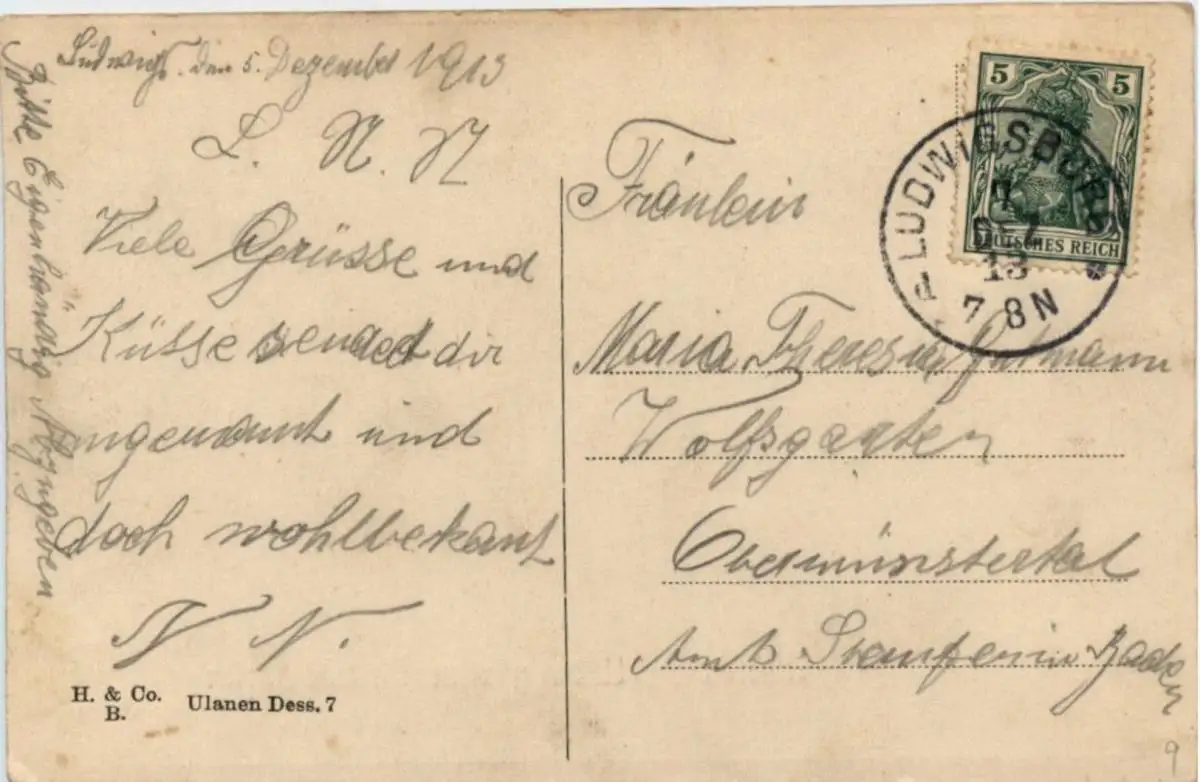 Ludwigs. den 5. Dezember 1913
L. N. N
Viele Grüsse und
Küsse sendet dir
ungenant und
doch wohlbekant
N N.
Bitte Eigenhändig Abzugeben
H. & Co.
B.
Ulanen Dess. 7
5 5
DEUTSCHES REICH
LUDWIGSBURG
7
DEZ
13
7 8 N
Fräulein
Maria Theresia Gutmann
Wolfsgarten
Obermünstertal
Amt Staufen in Baden
9